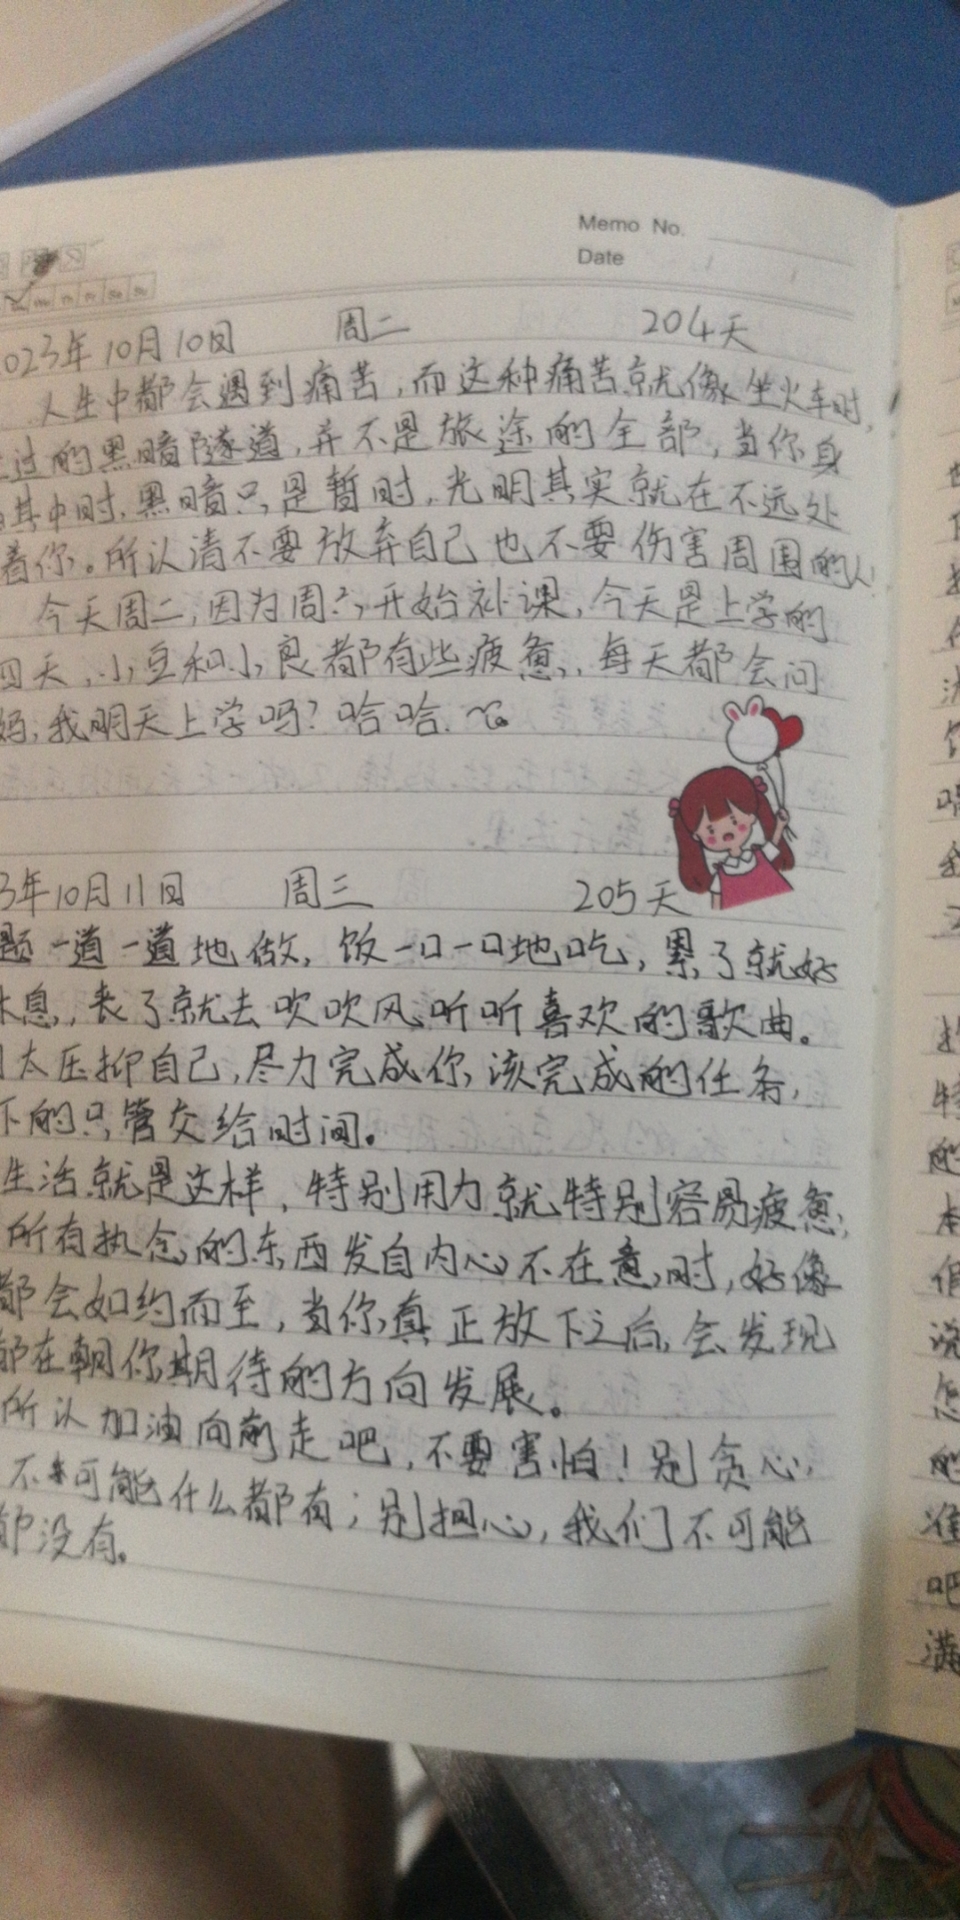 Memo No.
Date
023年10月10日 周二 204天
人生中都会遇到痛苦,而这种痛苦就像坐火车时,
过的黑暗隧道,并不是旅途的全部,当你身
其中时,黑暗只是暂时,光明其实就在不远处
着你。所认清不要放弃自己也不要伤害周围的人!
今天周二,因为周六开始补课,今天是上学的
四天,小豆和小良都有些疲惫,每天都会问
妈,我明天上学吗?哈哈.
3年10月11日 周三 205天
题一道一道地做,饭一口一口地吃,累了就好
休息,丧了就去吹吹风,听听喜欢的歌曲。
太压抑自己,尽力完成你该完成的任务,
下的只管交给时间。
生活就是这样,特别用力就特别容易疲惫,
所有执念的东西发自内心不在意时,好像
都会如约而至,当你真正放下之后,会发现
都在朝你期待的方向发展。
所认加油向前走吧,不要害怕!别贪心,
不可能什么都有;别担心,我们不可能
都没有。